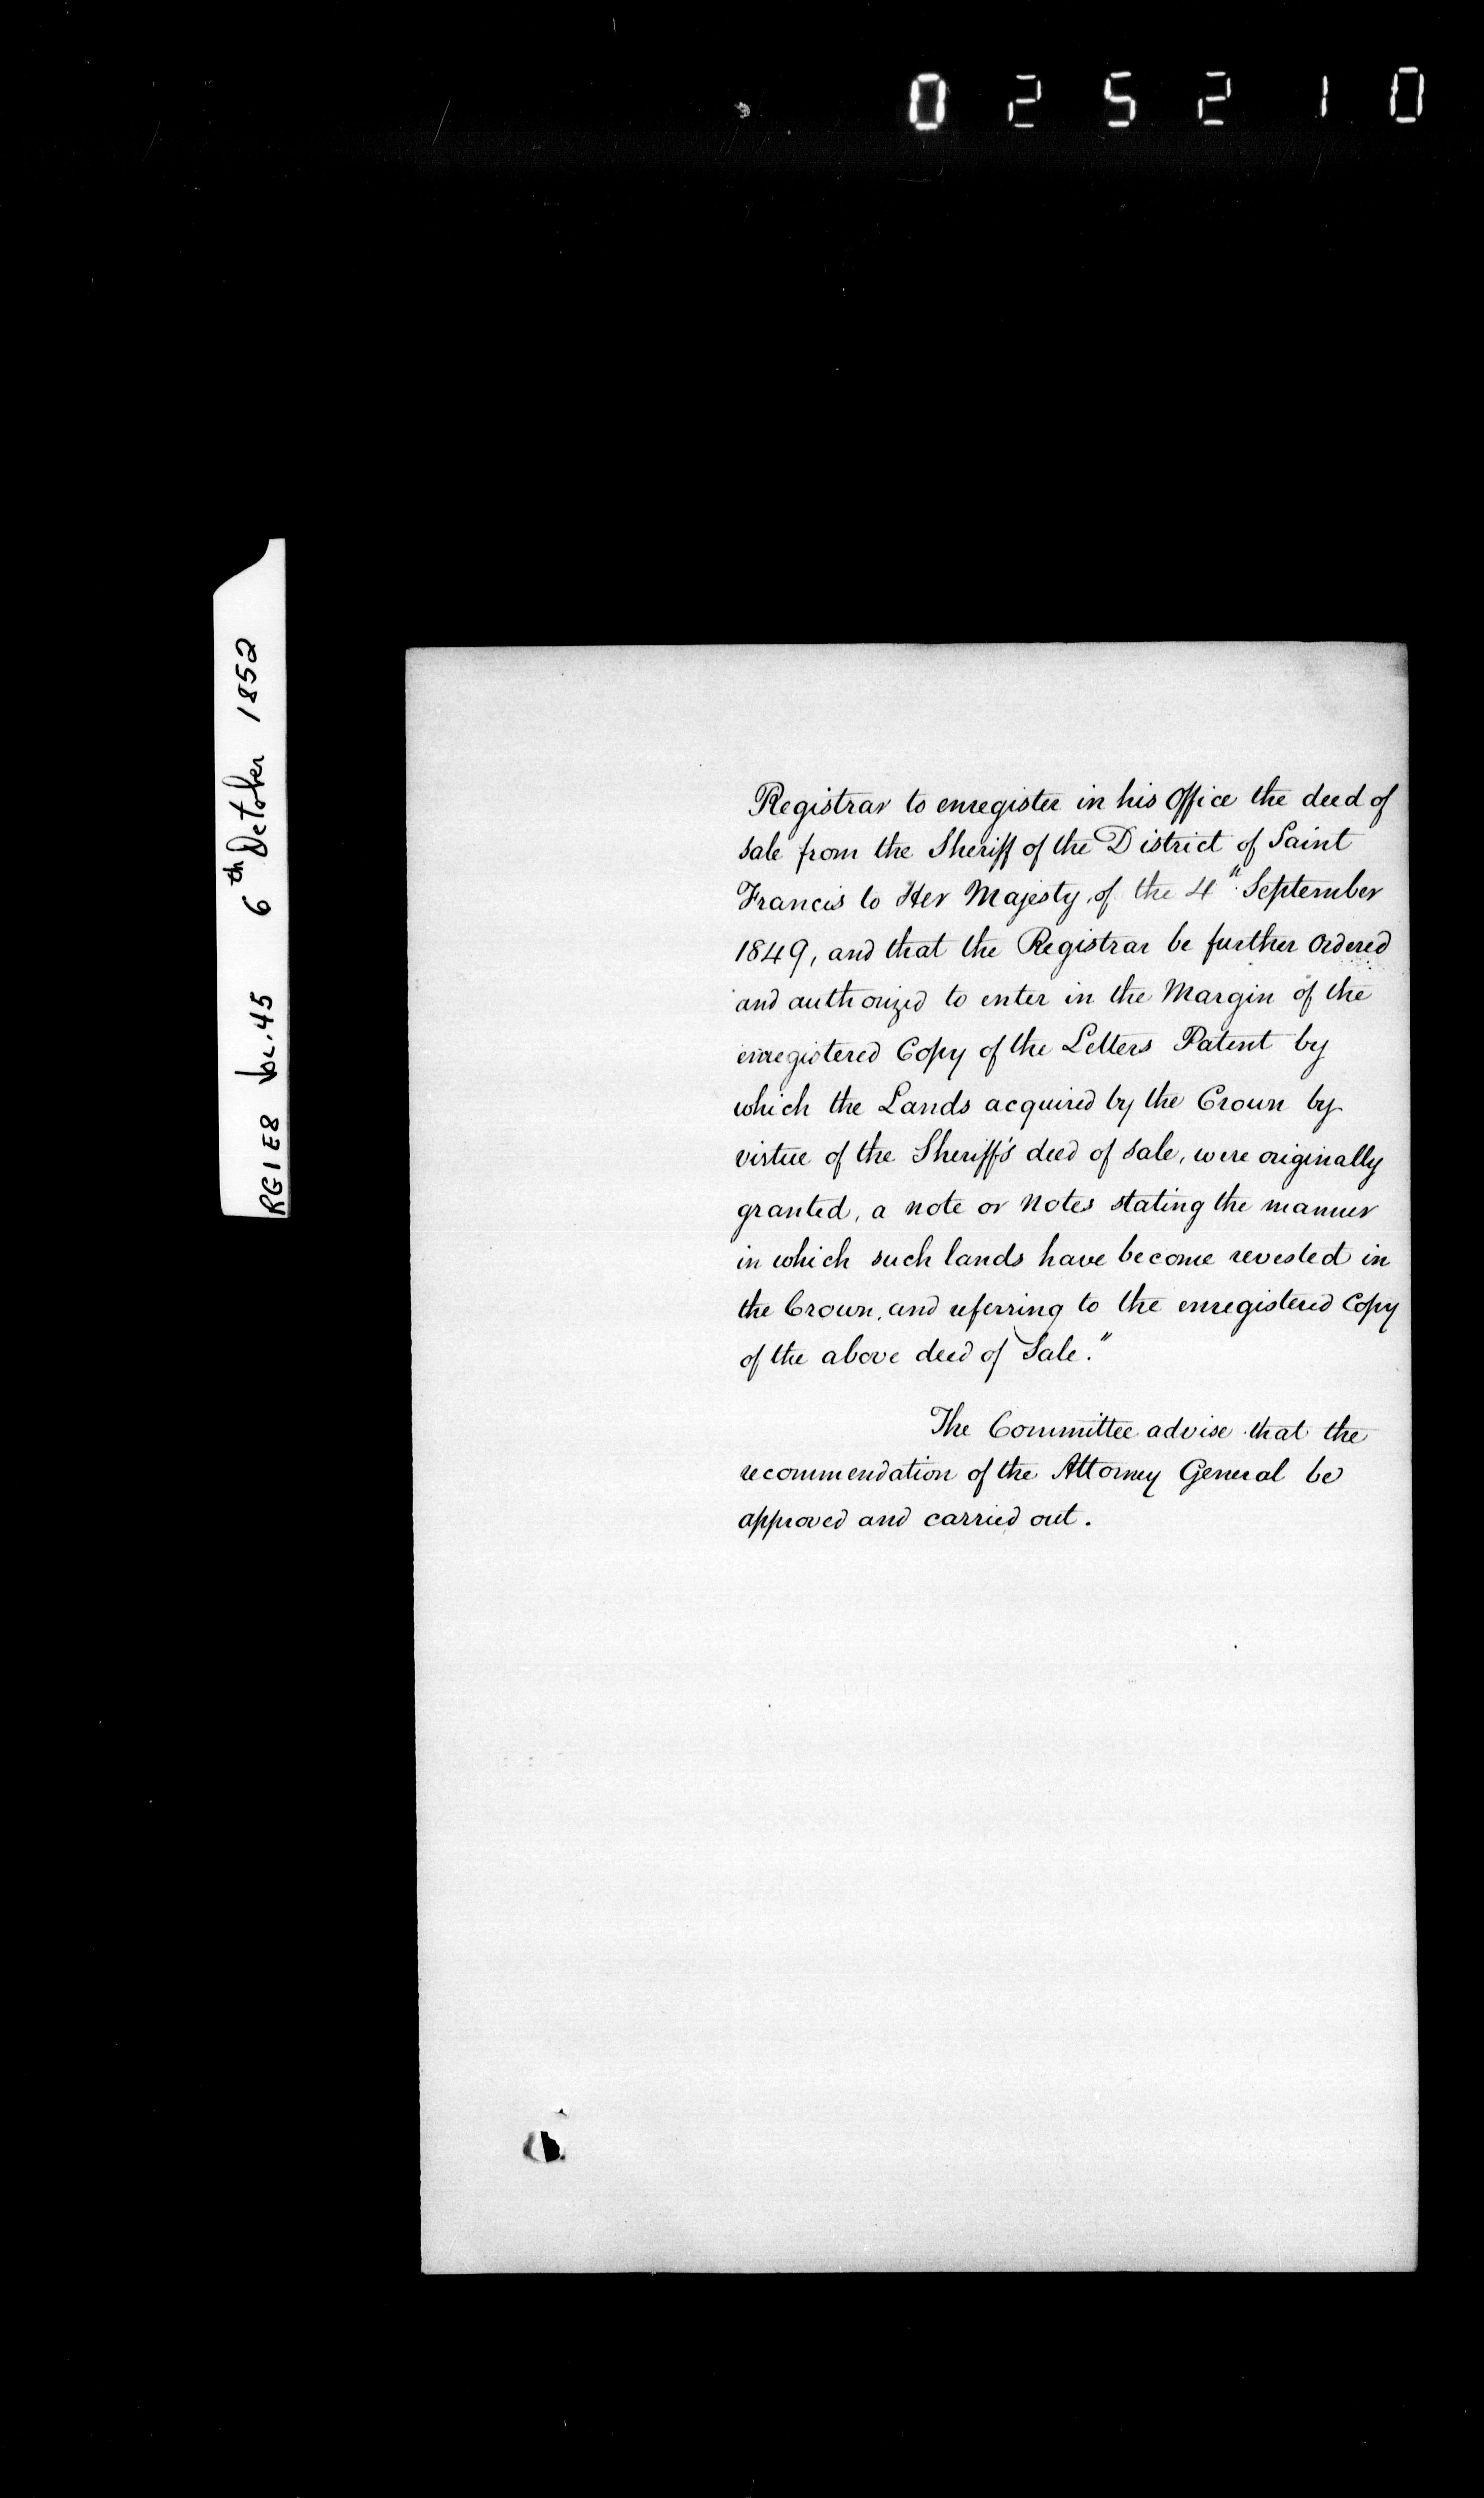 025210
RG1E8 Vol.45 6th October 1852
Registrar to enregister in his Office the deed of
sale from the Sheriff of the District of Saint
Francis to Her Majesty, of the 4" September
1849, and that the Registrar be further Ordered
and authorized to enter in the Margin of the
enregistered Copy of the Letters Patent by
which the Lands acquired by the Crown by
virtue of the Sheriff's deed of sale, were originally
granted, a note or notes stating the manner
in which such lands have become revested in
the Crown, and referring to the enregistered Copy
of the above deed of Sale."
The Committee advise that the
recommendation of the Attorney General be
approved and carried out.